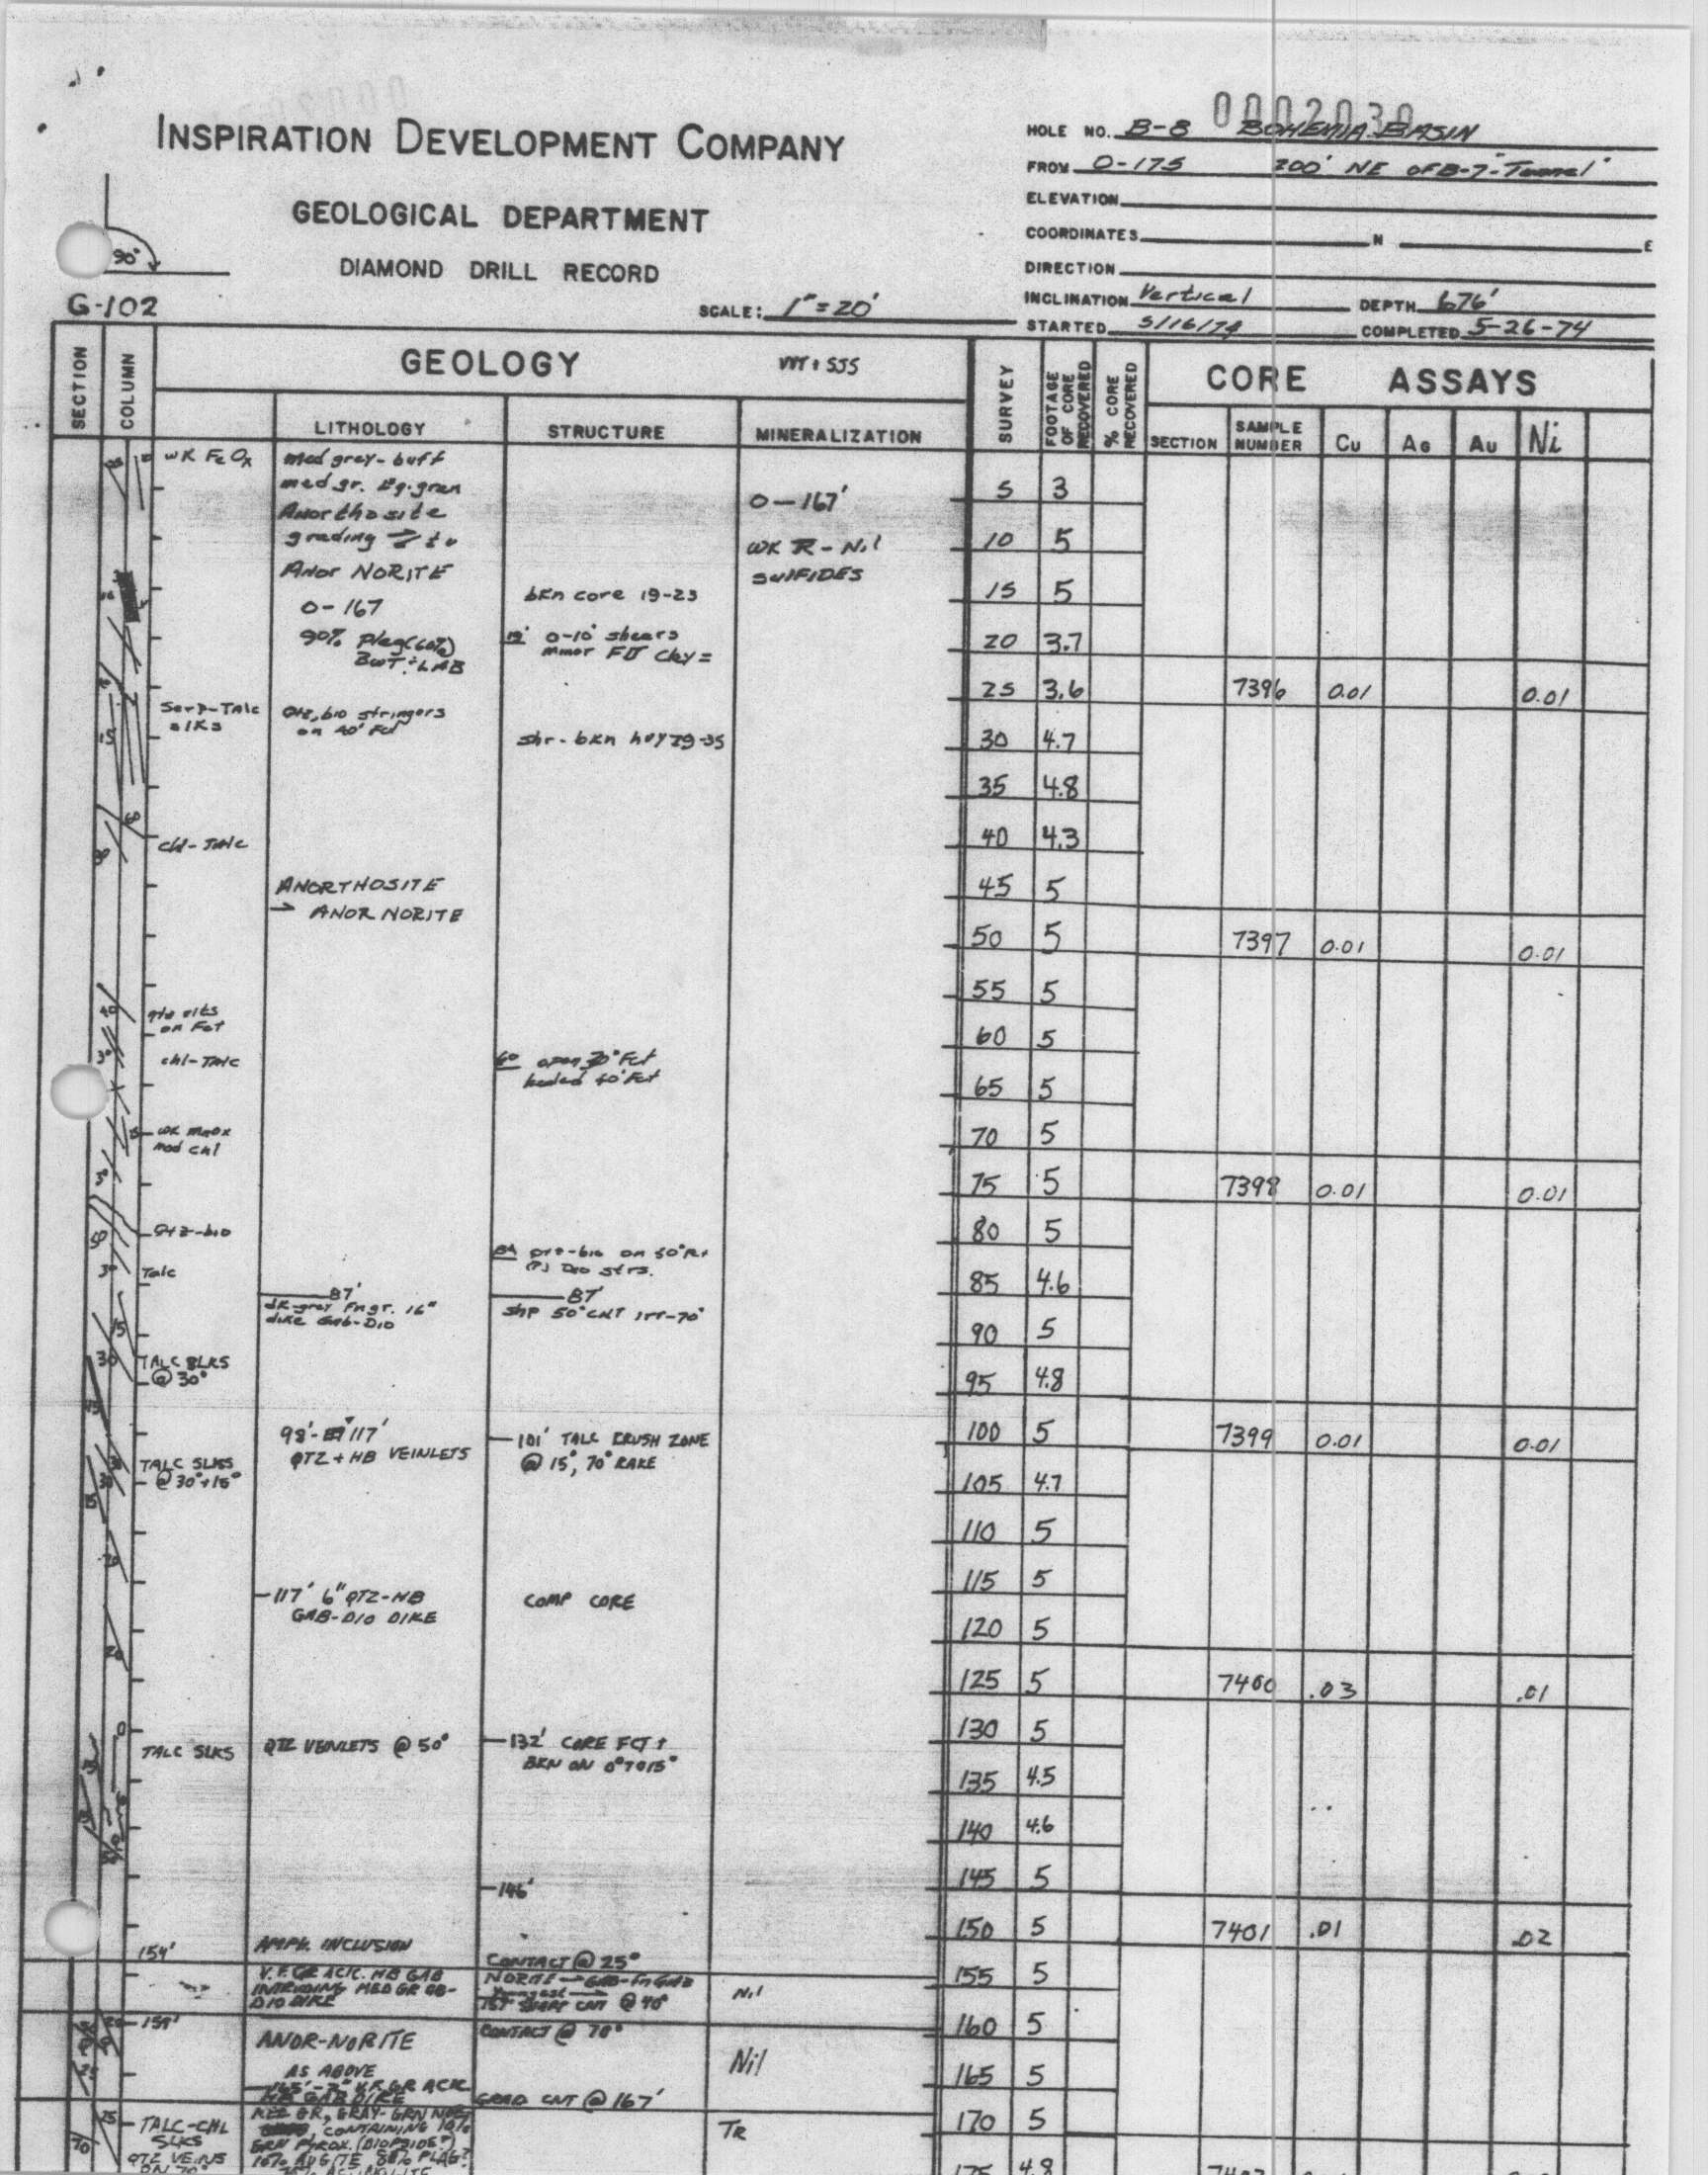 0002030
INSPIRATION DEVELOPMENT COMPANY
GEOLOGICAL DEPARTMENT
DIAMOND DRILL RECORD
90°
G-102
SCALE: 1"=20'
HOLE NO. B-8 BOHEMIA BASIN
FROM 0-175 200' NE OF B-7 "Tunnel"
ELEVATION
COORDINATES N E
DIRECTION
INCLINATION Vertical DEPTH 676'
STARTED 5/16/74 COMPLETED 5-26-74
SECTION COLUMN GEOLOGY SURVEY FOOTAGE OF CORE RECOVERED % CORE RECOVERED CORE ASSAYS
LITHOLOGY STRUCTURE MINERALIZATION SECTION SAMPLE NUMBER Cu AG AU Ni
WK FeOx
med grey-buff
med gr.
Anorthosite
grading
Anor NORITE
0-167
90% plag
0-167'
WK
SULFIDES
bkn core 19-23
0-10° shears
minor clay
Serp-Talc
slks
Qtz, bio stringers
on 40° Fct
shr-bkn 29-35
chl-Talc
ANORTHOSITE
→ ANOR NORITE
on Fct
chl-Talc
60 open 30° Fct
healed 40° Fct
WK mnox
mod chl
Qtz-bio
Talc
87'
dk-grey Fn gr. 16"
dike Gab-Dio
87'
50° CNT
TALC SLKS
@ 30°
98'- 117'
QTZ + HB VEINLETS
101' TALC CRUSH ZONE
@ 15°, 70° RAKE
TALC SLKS
@ 30°+15°
117' 6" QTZ-HB
GAB-DIO DIKE
COMP CORE
TALC SLKS
QTZ VEINLETS @ 50°
132' CORE FCT +
BKN ON 0° TO 15°
146'
154'
AMPH. INCLUSION
CONTACT @ 25°
V.F. GR ACIC. HB GAB
INTRUDING MED GR GB-
DIO DIKE
NORITE →
CNT @ 40°
Nil
159'
ANOR-NORITE
AS ABOVE
V.F. GR ACIC
HB GAB DIKE
CONTACT @ 70°
GRAD CNT @ 167'
Nil
TALC-CHL
SLKS
QTZ VEINS
ON 70°
MED GR, GRAY-GRN
CONTAINING 10%
GRN PYROX. (DIOPSIDE?)
AUGITE, PLAG?
TR
5 3
10 5
15 5
20 3.7
25 3.6 7396 0.01 0.01
30 4.7
35 4.8
40 4.3
45 5
50 5 7397 0.01 0.01
55 5
60 5
65 5
70 5
75 5 7398 0.01 0.01
80 5
85 4.6
90 5
95 4.8
100 5 7399 0.01 0.01
105 4.7
110 5
115 5
120 5
125 5 7400 .03 .01
130 5
135 4.5
140 4.6
145 5
150 5 7401 .01 .02
155 5
160 5
165 5
170 5
175 4.8